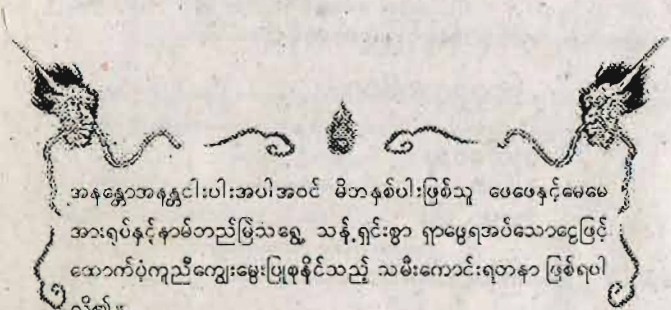 အနန္တောအနန္တငါးပါးအပါအဝင် မိဘနှစ်ပါးဖြစ်သူ ဖေဖေနှင့်မေမေ
အားရုပ်နှင့်နာမ်တည်မြဲသရွေ့ သန့်ရှင်းစွာ ရှာဖွေရအပ်သောငွေဖြင့်
ထောက်ပံ့ကူညီကျွေးမွေးပြုစုနိုင်သည့် သမီးကောင်းရတနာ ဖြစ်ရပါ
လို၏။